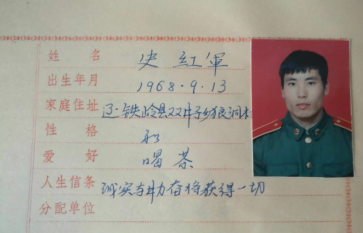 姓 名 史红軍
出生年月 1968.9.13
家庭住址 辽·铁岭县双井子乡
性 格
爱 好 喝茶
人生信条 诚实与勤奋将获得一切
分配单位